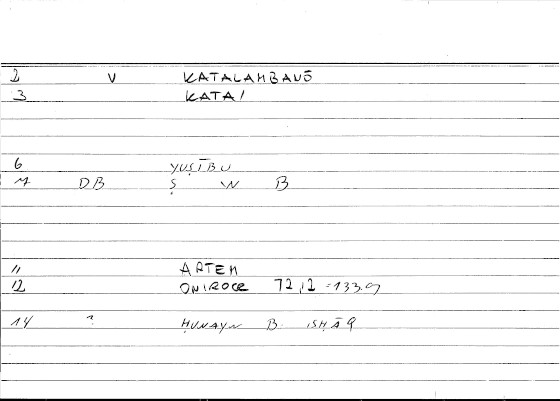 2 V KATALAMBANŌ
3 KATA/
6 YUṢĪBU
7 DB Ṣ W B
11 ARTEM
12 ONIROCR 72,2 = 133.9
14 ? ḤUNAYN B. ISḤĀQ